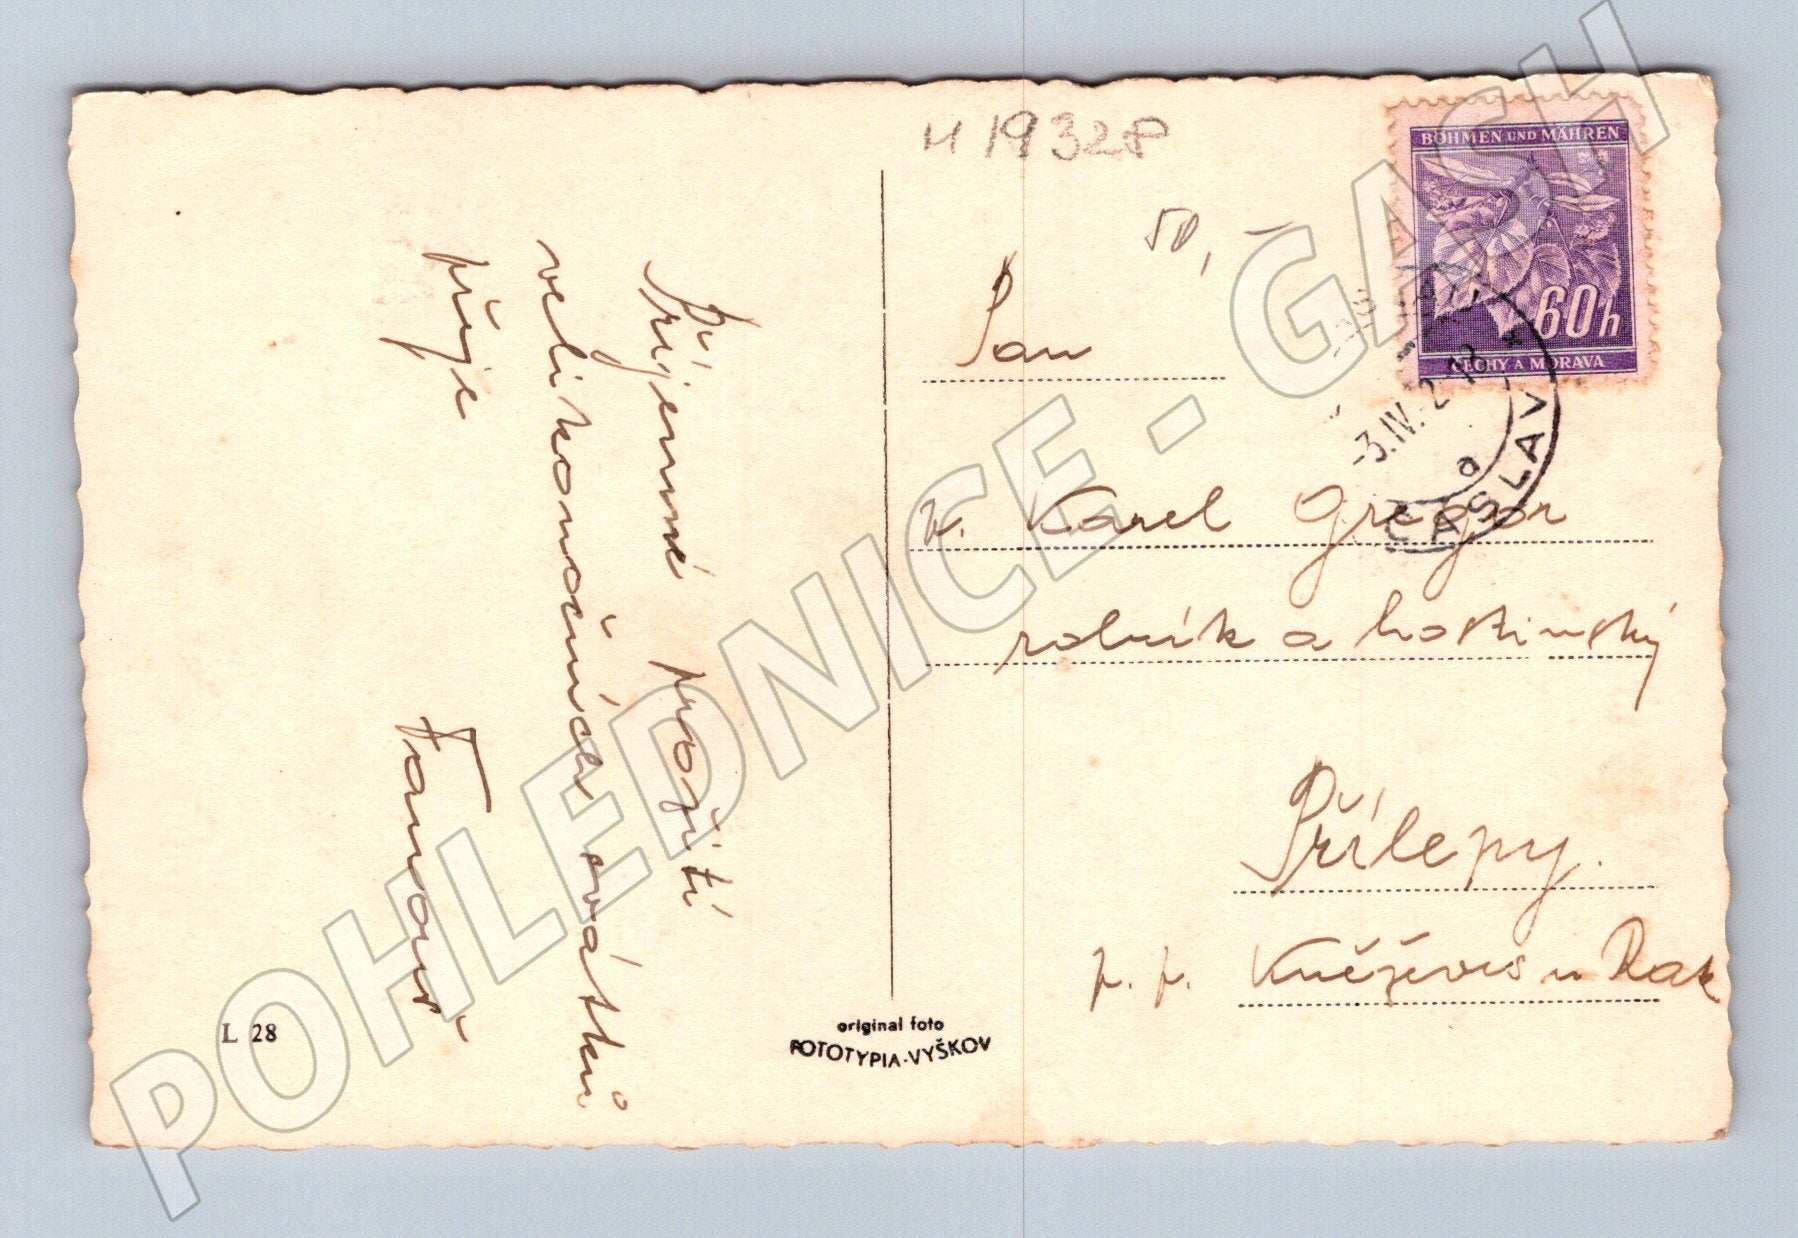 Příjemné prožití
velikonočních svátků
přeje
L 28
original foto
FOTOTYPIA-VYŠKOV
H 1932P
50,-
BÖHMEN UND MÄHREN
60h
ČECHY A MORAVA
-3.IV. 2-18
a
ČASLAV
Pan
p. Karel Gregor
rolník a hostinský
Přílepy.
p. p. Kněževes u Rak
POHLEDNICE - GASH